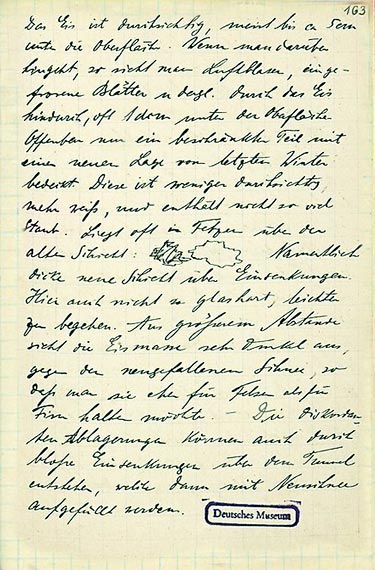 163
Das Eis ist durchsichtig, meist bis ca 5cm
unter die Oberfläche. Wenn man darüber
hingeht, so sieht man Luftblasen, einge-
frorene Blätter u dergl. durch das Eis
hindurch, oft 1dcm unter der Oberfläche
Offenbar nur ein beschränkter Teil mit
einer neuen Lage vom letzten Winter
bedeckt. Diese ist weniger durchsichtig,
mehr weiß, und enthält nicht so viel
Staub. Liegt oft in Fetzen über der
alten Schicht: Namentlich
dicke neue Schicht über Einsenkungen.
Hier auch nicht so glashart, leichter
zu begehen. Aus größerem Abstande
sieht die Eismasse sehr dunkel aus,
gegen den neugefallenen Schnee, so
daß man sie eher für Felsen als für
Firn halten möchte. – Die diskordan-
ten Ablagerungen können auch durch
bloße Einsenkungen über dem Tunnel
entstehen, welche dann mit Neuschnee
aufgefüllt werden.
Deutsches Museum